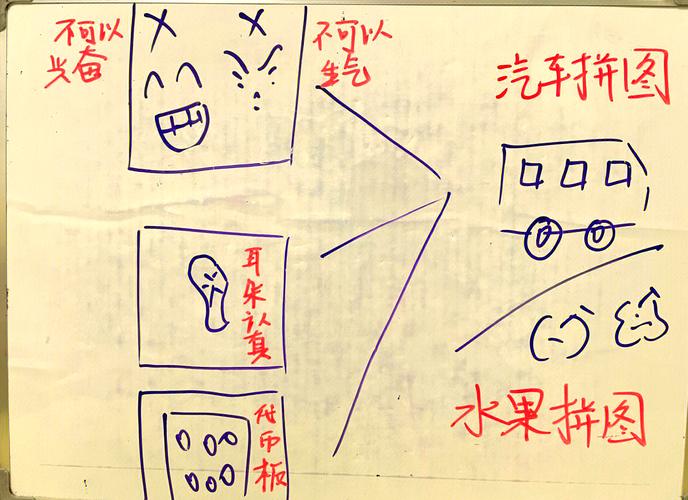 不可以
兴奋
不可以
生气
汽车拼图
耳朵认真
代币板
水果拼图